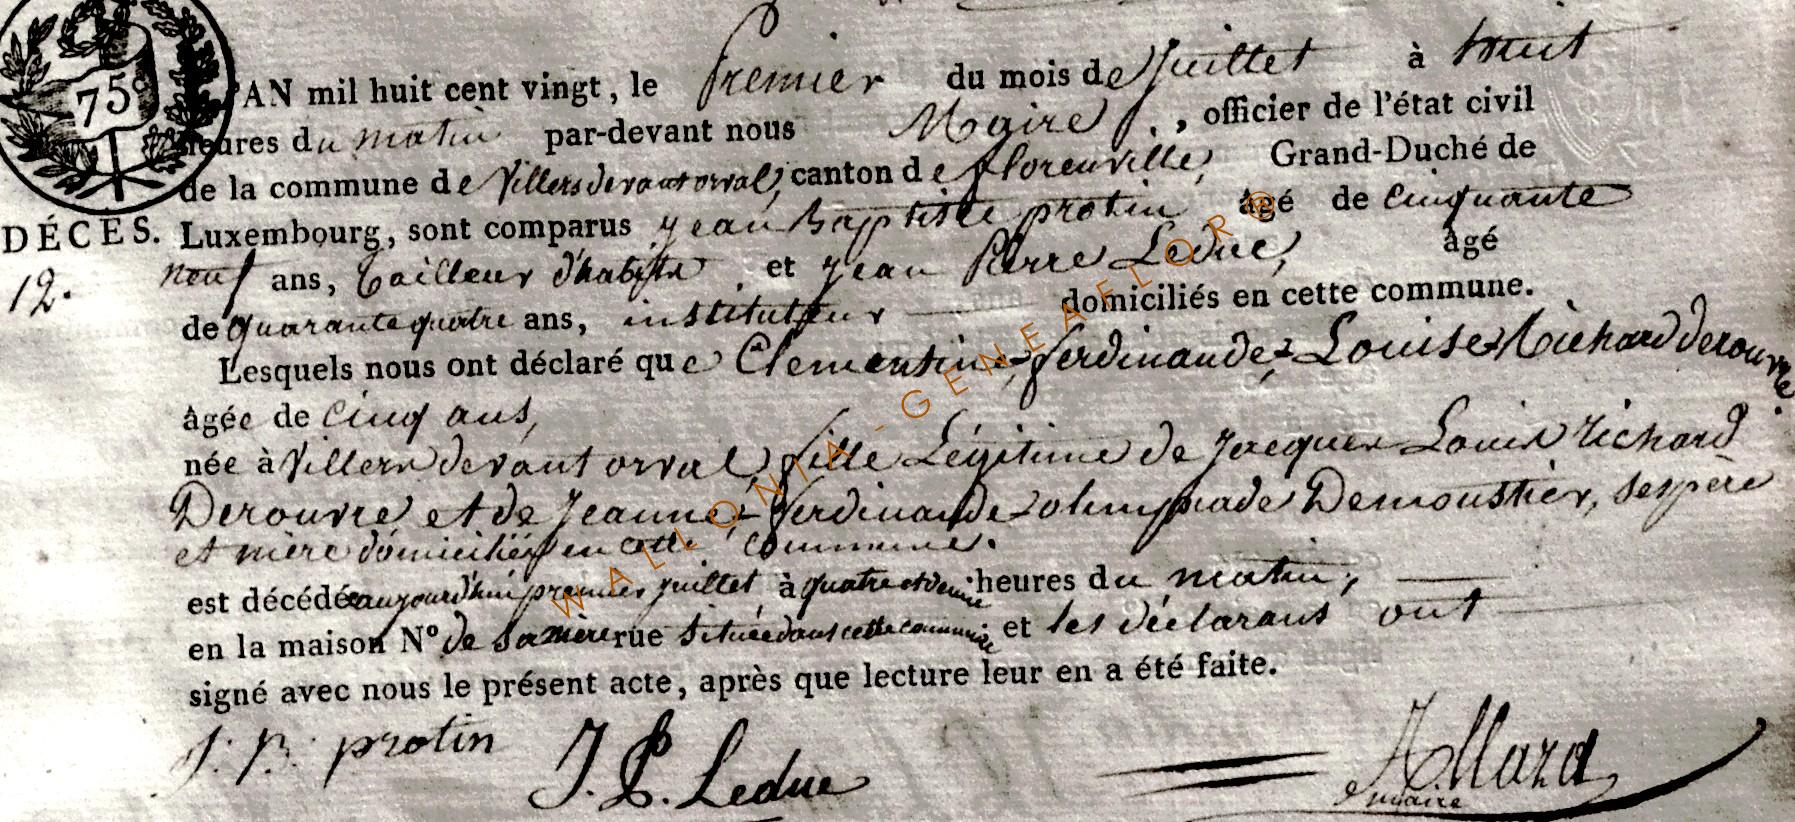 75c
L'AN mil huit cent vingt, le Premier du mois de Juillet à huit
heures du matin par-devant nous Maire, officier de l'état civil
de la commune de Villers devant orval, canton de florenville, Grand-Duché de
DÉCÈS. Luxembourg, sont comparus jean Baptiste protin âgé de cinquante
12. neuf ans, tailleur d'habits et jean Pierre Leduc, âgé
de quarante quatre ans, instituteur domiciliés en cette commune.
Lesquels nous ont déclaré que Clementine, ferdinande, Louise Richard derouvre.
âgée de cinq ans,
née à Villers devant orval, fille Légitime de Jacques Louis Richard
Derouvre et de Jeanne ferdinande olimpiade Demoustier, ses père
et mère domiciliés en cette commune.
est décédée aujourd'hui premier juillet à quatre et demie heures du matin,
en la maison N° de sa mère rue située dans cette commune et les déclarans ont
signé avec nous le présent acte, après que lecture leur en a été faite.
J. B. protin J. P. Leduc
maire
WALLONIA - GENEAFLORE